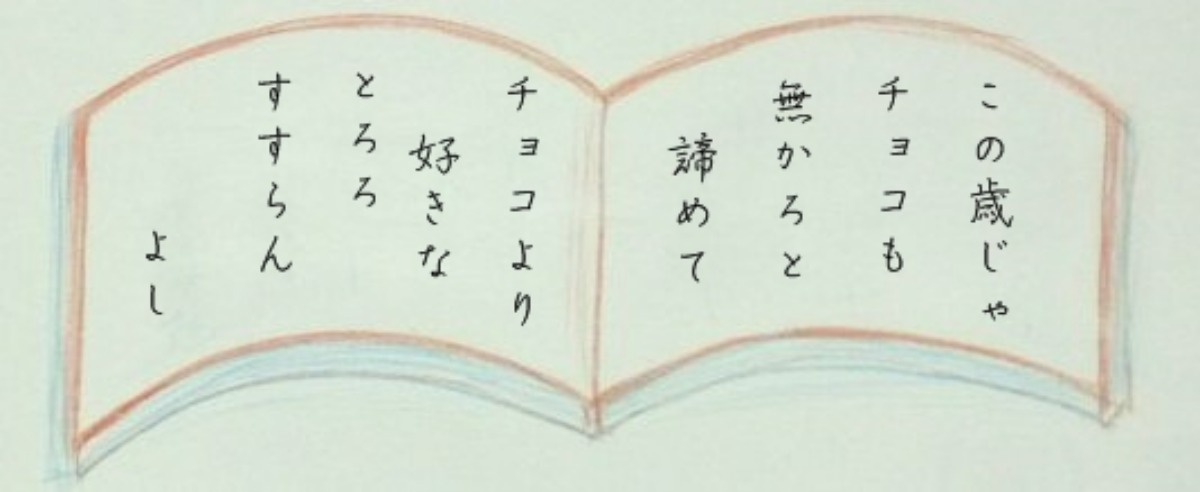 この歳じゃ
チョコも
無かろと
諦めて
チョコより
好きな
とろろ
すすらん
よし